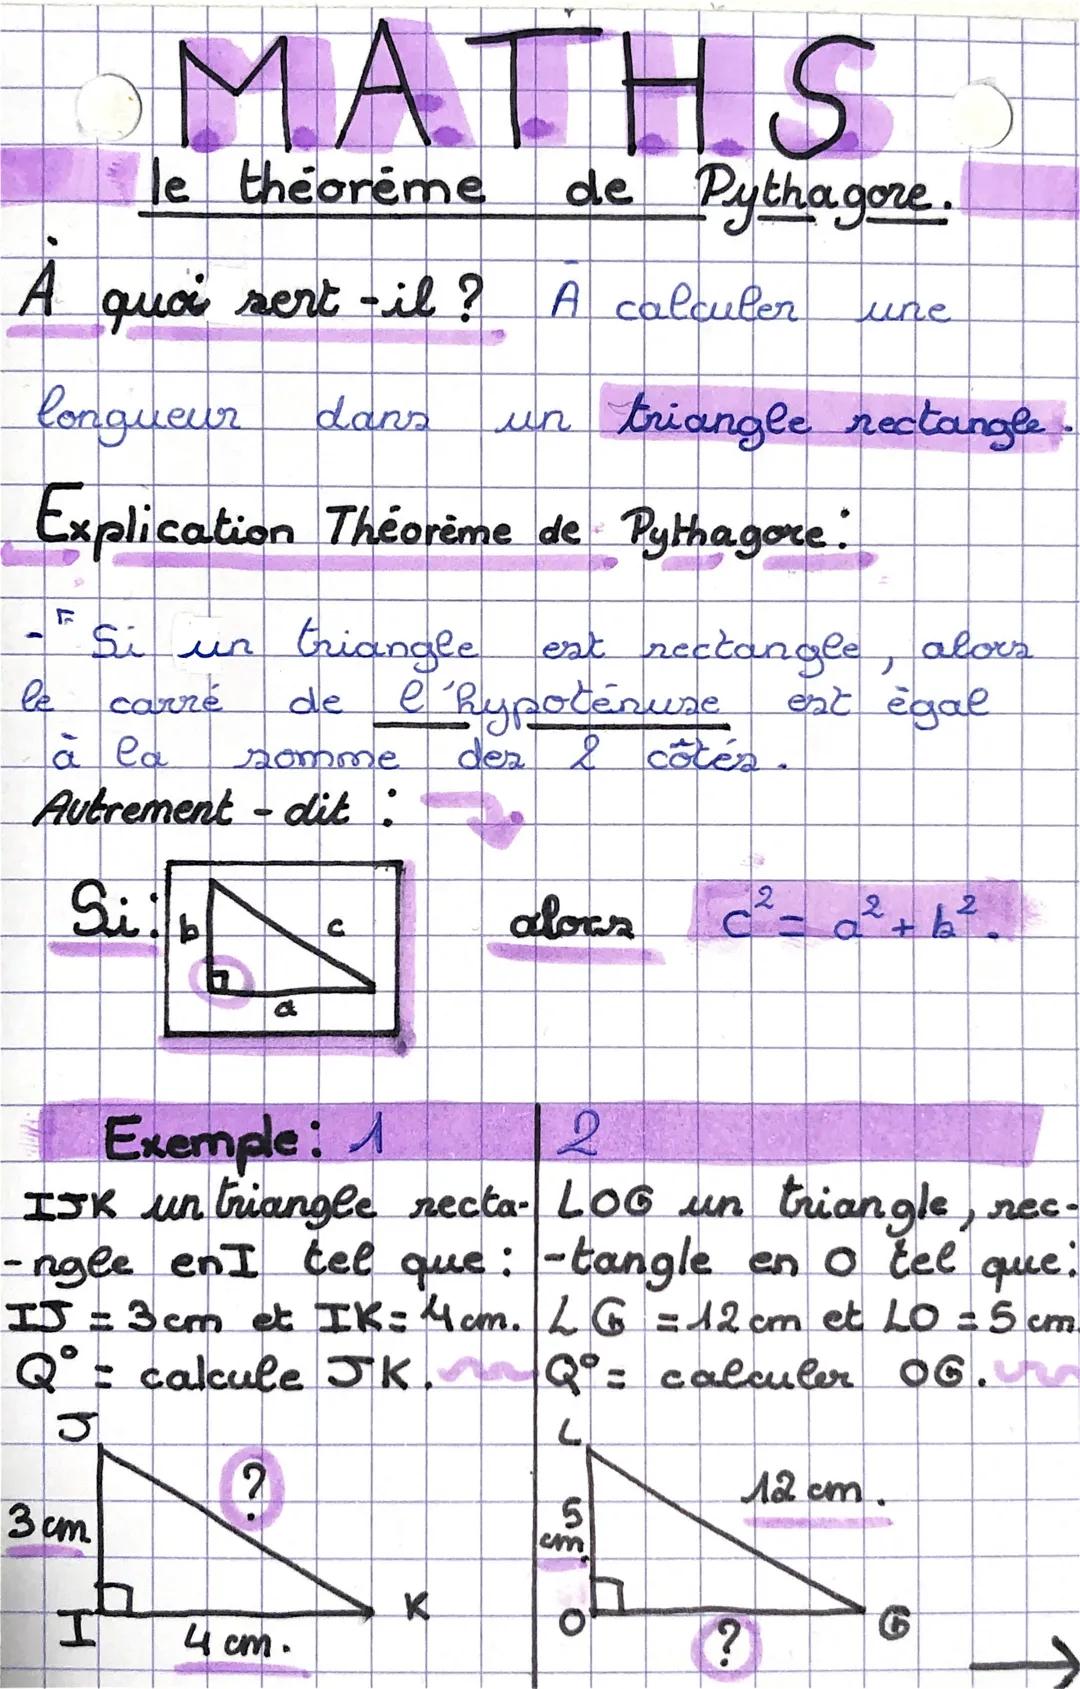 MATHS
le théorème de Pythagore.
À quoi sert-il ? À calculer une
longueur dans un triangle rectangle.
Explication Théorème de Pythagore :
- " Si un triangle est rectangle, alors
le carré de l'hypoténuse est égal
à la somme des 2 côtés.
Autrement-dit :
Si :
b
c
a
alors c² = a² + b².
Exemple : 1
IJK un triangle recta-
-ngle en I tel que :
IJ = 3 cm et IK = 4 cm.
Q° = calcule JK.
J
?
3 cm
I
K
4 cm.
2
LOG un triangle, rec-
-tangle en O tel que :
LG = 12 cm et LO = 5 cm
Q° = calculer OG.
L
12 cm.
5
cm.
O
G
?